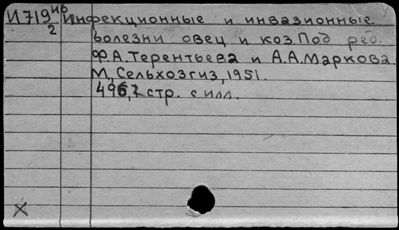 И719 ио Инфекционные и инвазионные
2 болезни овец и коз. Под ред.
Ф.А. Терентьева и А.А. Маркова.
М, Сельхозгиз, 1951.
стр. с илл.
X